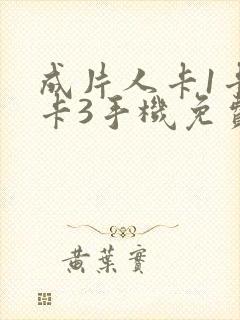 成片人卡1卡
卡3手機免費
黄葉實